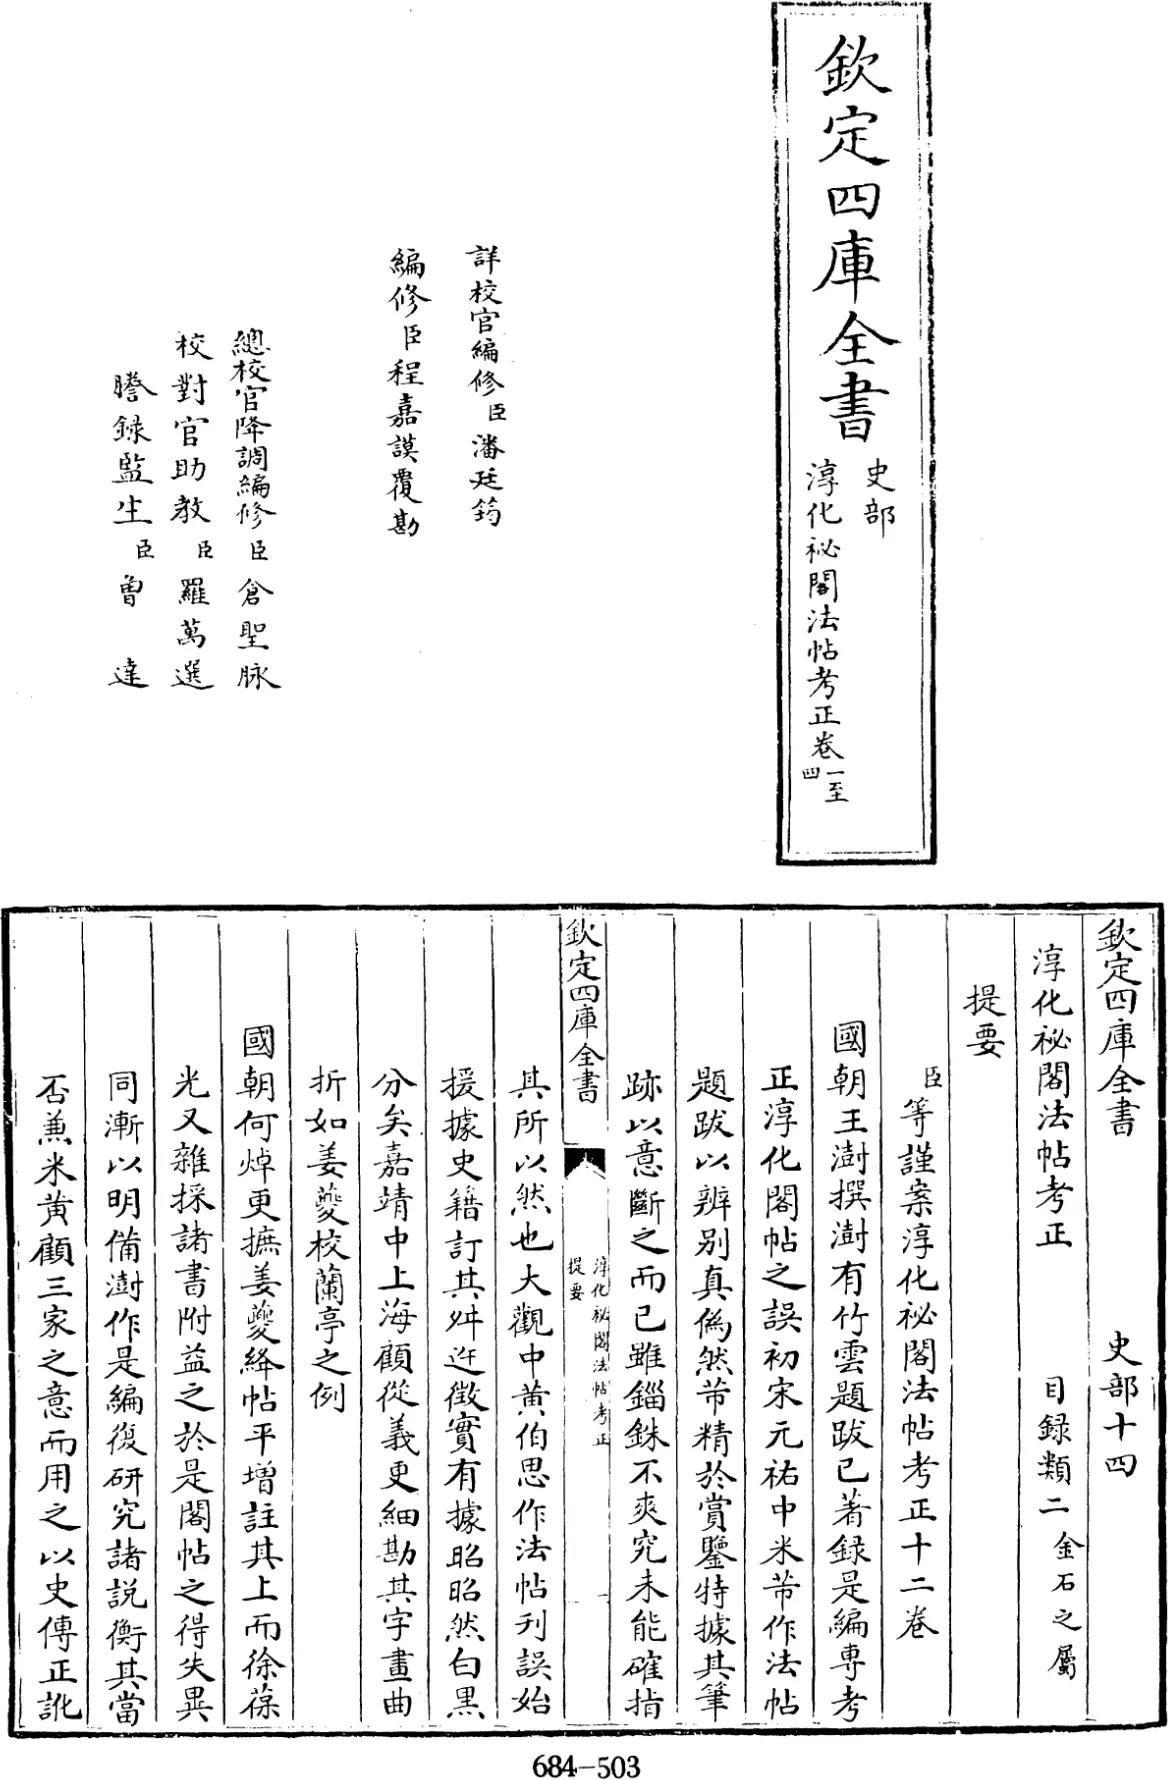 欽定四庫全書
史部
淳化祕閣法帖考正卷一至四
詳校官編修臣潘廷筠
編修臣程嘉謨覆勘
總校官降調編修臣倉聖脉
校對官助教臣羅萬選
謄錄監生臣曾達
欽定四庫全書 史部十四
淳化祕閣法帖考正 目録類二金石之屬
提要
臣等謹案淳化祕閣法帖考正十二卷
國朝王澍撰澍有竹雲題跋已著録是編專考
正淳化閣帖之誤初宋元祐中米芾作法帖
題跋以辨别真偽然芾精於賞鑒特據其筆
跡以意斷之而已雖錙銖不爽究未能確指
欽定四庫全書
淳化祕閣法帖考正
提要
一
其所以然也大觀中黄伯思作法帖刊誤始
援據史籍訂其舛迕徵實有據昭昭然白黒
分矣嘉靖中上海顧從義更細勘其字畫曲
折如姜夔校蘭亭之例
國朝何焯更摭姜夔絳帖平増註其上而徐葆
光又雜採諸書附益之於是閣帖之得失異
同漸以明備澍作是編復研究諸説衡其當
否兼米黄顧三家之意而用之以史傳正訛
684-503